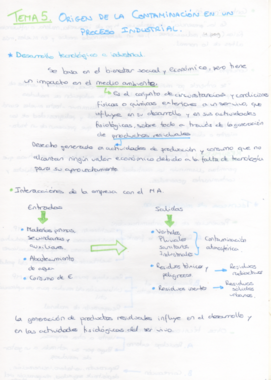 TEMA 5. ORIGEN DE LA CONTAMINACIÓN EN UN
PROCESO INDUSTRIAL.
Desarrollo tecnológico o industrial
Se basa en el bienestar social y económico, pero tiene
un impacto en el medio ambiente.
Es el conjunto de circunstancias y condiciones
físicas o químicas exteriores a un ser vivo que
influyen en su desarrollo y en sus actividades
fisiológicas, sobre todo a través de la generación
de productos residuales
Desecho generado en actividades de producción y consumo que no
alcanzan ningún valor económico debido a la falta de tecnología
para su aprovechamiento
Interacciones de la empresa con el M.A.
Entradas
Salidas
Materias primas
secundarias y
auxiliares.
Abastecimiento
de agua
Consumo de E
Vertidos
Pluviales
Sanitarios
Industriales
Contaminación
atmosférica
Residuos tóxicos y
peligrosos
Residuos
Residuos inertes
Residuos
sólidos
La generación de productos residuales influye en el desarrollo y
en las actividades fisiológicas del ser vivo.